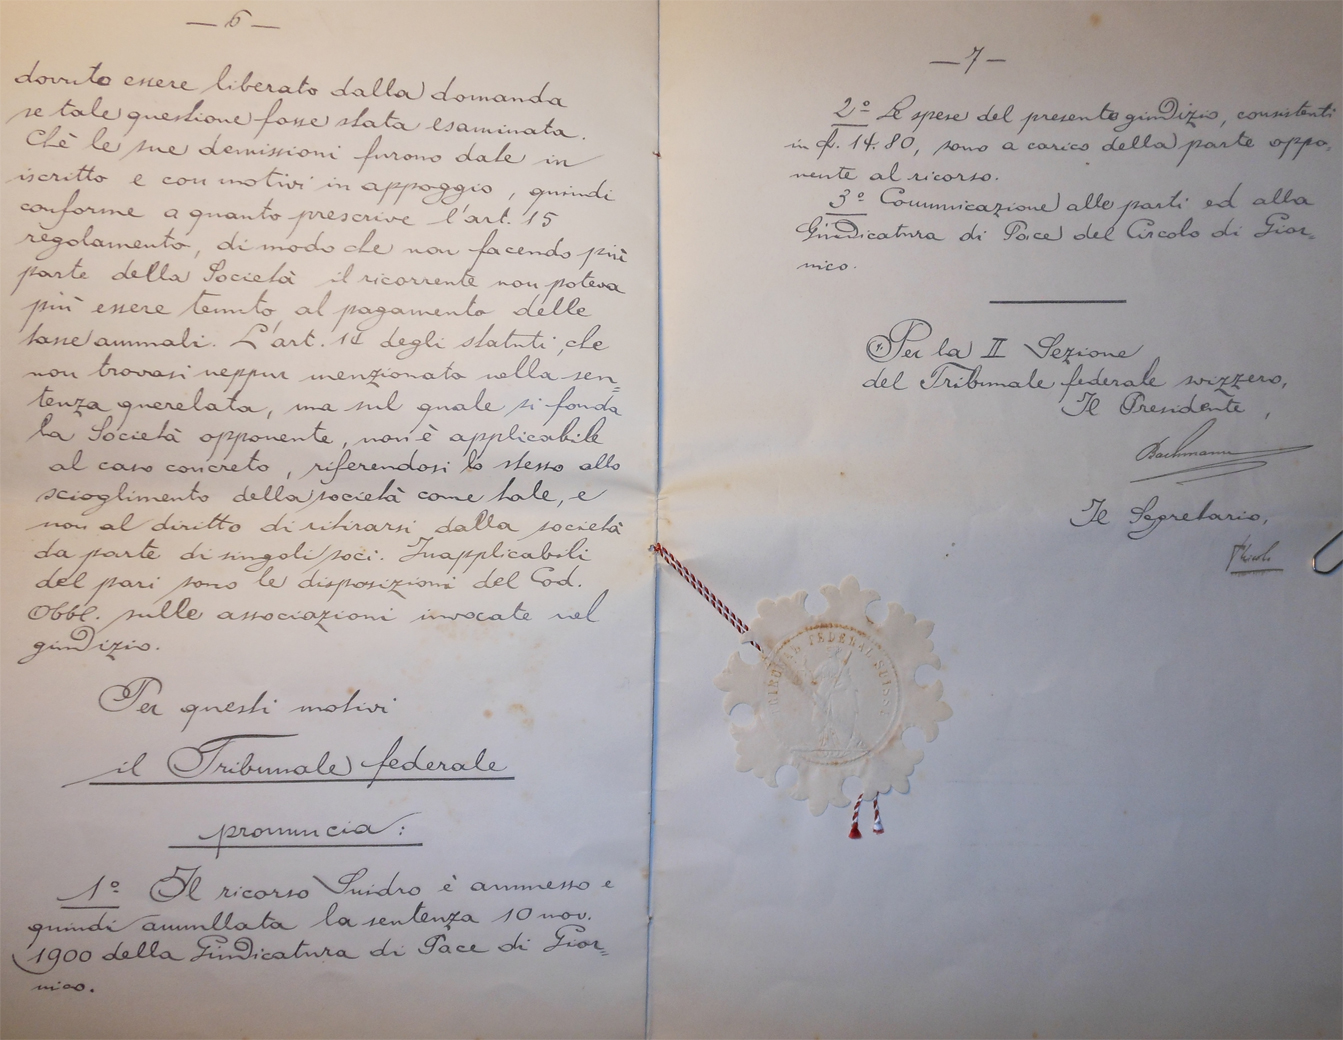 — 6 —
dovuto essere liberato dalla domanda
se tale questione fosse stata esaminata.
Chè le sue demissioni furono date in
iscritto e con motivi in appoggio, quindi
conforme a quanto prescrive l'art. 15
regolamento, di modo che non facendo più
parte della Società il ricorrente non poteva
più essere tenuto al pagamento delle
tasse annuali. L'art. 14 degli statuti, che
non trovasi neppur menzionato nella sen=
tenza querelata, ma sul quale si fonda
la Società opponente, non è applicabile
al caso concreto, riferendosi lo stesso allo
scioglimento della società come tale, e
non al diritto di ritirarsi dalla società
da parte di singoli soci. Inapplicabili
del pari sono le disposizioni del Cod.
Obbl. sulle associazioni invocate nel
giudizio.
Per questi motivi
il Tribunale federale
pronuncia:
1º Il ricorso Snidro è ammesso e
quindi annullata la sentenza 10 nov.
1900 della Giudicatura di Pace di Gior=
nico.
— 7 —
2º Le spese del presente giudizio, consistenti
in fr. 14.80, sono a carico della parte oppo=
nente al ricorso.
3º Comunicazione alle parti ed alla
Giudicatura di Pace del Circolo di Gior=
nico.
Per la II Sezione
del Tribunale federale svizzero,
Il Presidente,
Bachmann
Il Segretario,
TRIBUNAL FEDERAL SUISSE